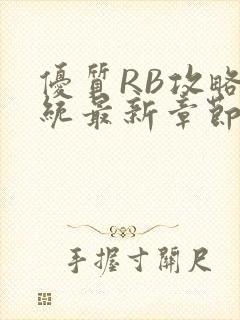 優質RB攻略
統最新章節
手握寸關尺